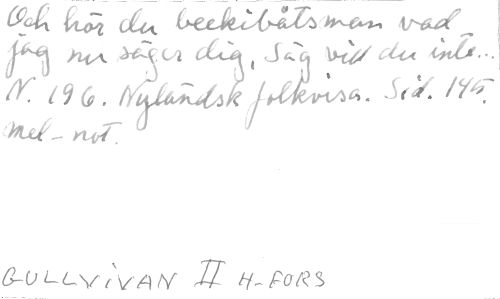 Och hör du beckibåtsman vad
jag nu säger dig, Säg vill du inte...
N. 196. Nyländsk folkvisa. Sid. 145.
mel-not.
GULLVIVAN II H-FORS